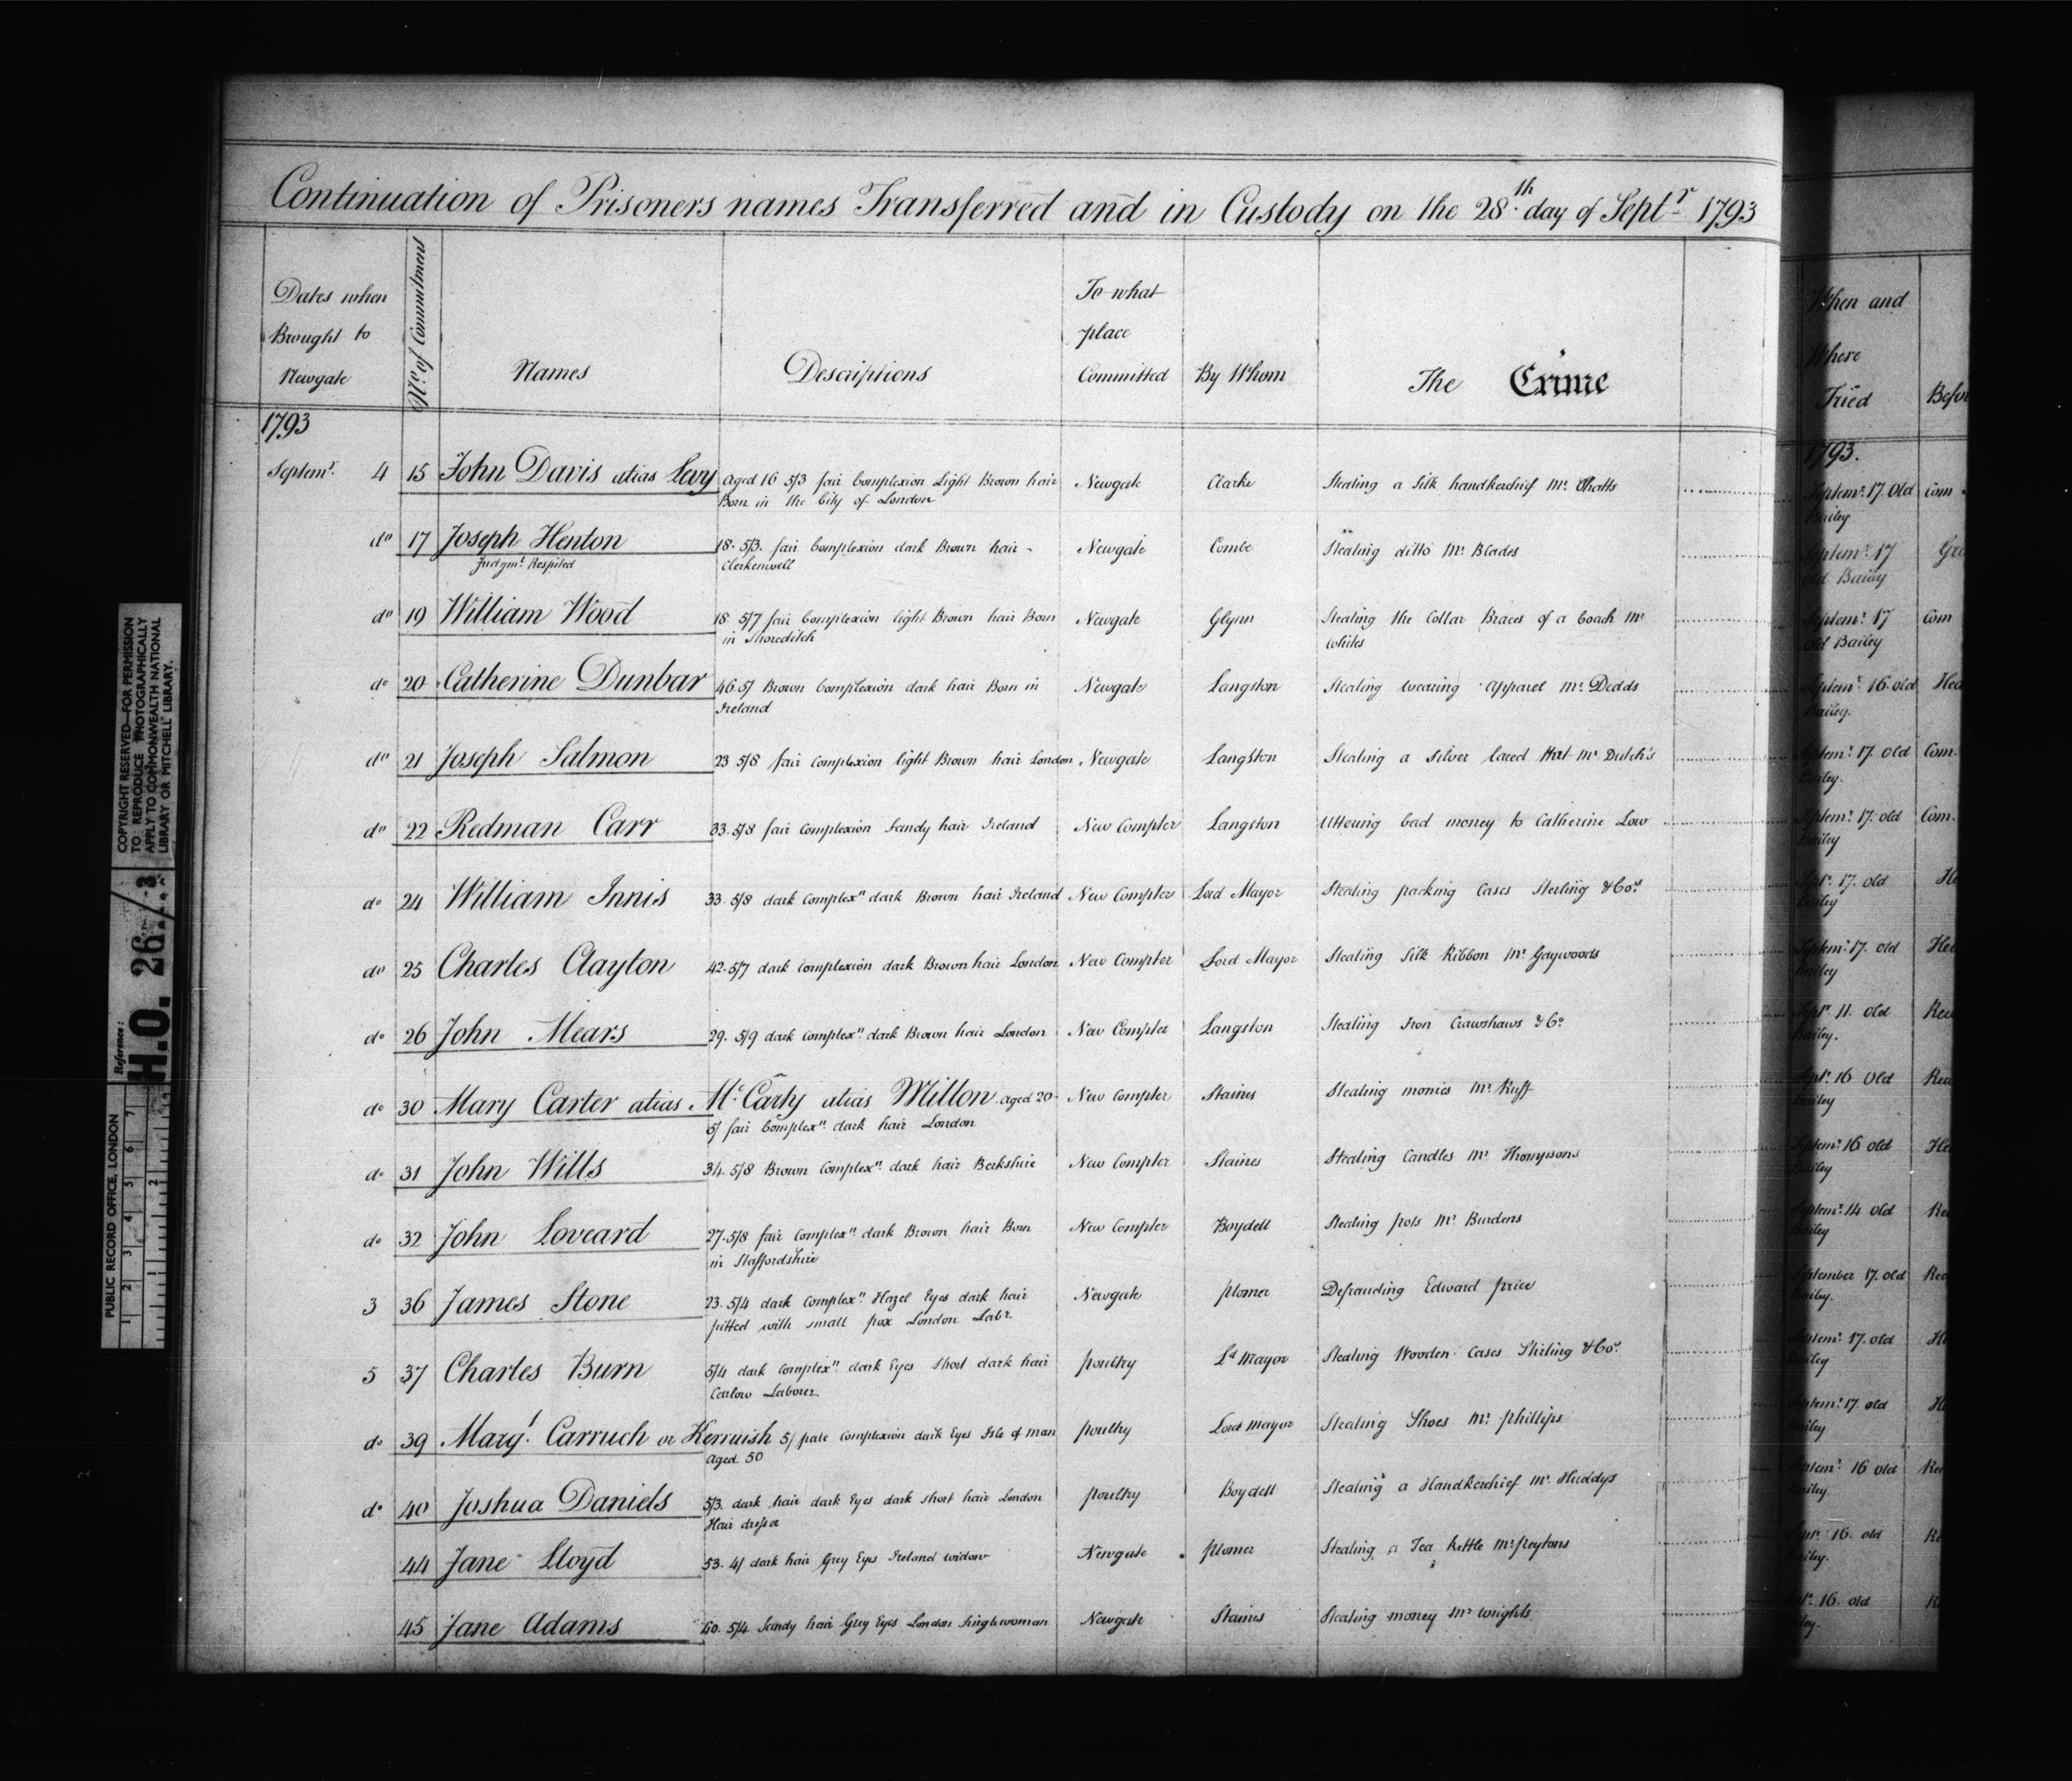 Continuation of Prisoners names Transferred and in Custody on the 28th. day of Septr 1793
Dates when Brought to Newgate
No. of Commitment
Names
Descriptions
To what place Committed
By Whom
The Crime
When and Where Tried
1793
1793.
Septemr. 4 15 John Davis alias Levy aged 16 5/3 fair Complexion Light Brown hair Newgate Clarke Stealing a Silk handkerchief Mr. Septemr. 17. Old Com
Born in the City of London Bailey
do 17 Joseph Henton 18. 5/3. fair Complexion dark Brown hair - Newgate Combe Stealing ditto Mr. Blades Septemr. 17
Judgmt. Respited Clerkenwell Old Bailey
do 19 William Wood 18 5/7 fair Complexion light Brown hair Born Newgate Glynn Stealing the Collar Braces of a Coach Mr Septemr. 17 Com
in Shoreditch Whites Old Bailey
do 20 Catherine Dunbar 46. 5/ Brown Complexion dark hair Born in Newgate Langston Stealing wearing apparel Mr. Dodds Septemr. 16. old
Ireland Bailey.
do 21 Joseph Salmon 23 5/8 fair Complexion light Brown hair London Newgate Langston Stealing a Silver laced Hat Mr Septemr. 17. Old Com.
Bailey.
do 22 Redman Carr 33. 5/8 fair Complexion Sandy hair Ireland New Compter Langston Uttering bad money to Catherine Low Septemr. 17. old Com.
Bailey
do 24 William Innis 33. 5/8 dark Complexn dark Brown hair Ireland New Compter Lord Mayor Stealing packing Cases Sterling & Cos. Septr. 17. old
Bailey
do 25 Charles Clayton 42. 5/7 dark Complexion dark Brown hair London New Compter Lord Mayor Stealing Silk Ribbon Mr. Gaywoods Septemr. 17. old
Bailey
do 26 John Mears 29. 5/9 dark Complexn. dark Brown hair London New Compter Langston Stealing Iron Crawshaws & Co. Septr. 11. old
Bailey.
do 30 Mary Carter alias McCarty alias Milton. aged 20 - New Compter Staines Stealing monies Mr. Ruff Septr. 16 Old
5/ fair Complexn. dark hair London Bailey
do 31 John Wills 34. 5/8 Brown Complexn. dark hair Berkshire New Compter Staines Stealing Candles Mr Thompsons Septemr. 16 old
Bailey
do 32 John Loveard 27. 5/8 fair Complexn. dark Brown hair Born New Compter Boydell Stealing pots Mr. Burdens Septemr. 14 old
in Staffordshire Bailey
3 36 James Stone 23. 5/4 dark Complexn. Hazel Eyes dark hair Newgate plomer Defrauding Edward price September 17. old
pitted with small pox London Labr. Bailey.
5 37 Charles Burn 5/4 dark Complexn. dark Eyes Short dark hair poultry Ld Mayor Stealing Wooden Cases Stirling & Cos. Septemr. 17. old
Carlow Laborer. Bailey
do 39 Margt. Carruch or Kerruish 5/ pale complexion dark Eyes Isle of man poultry Lord mayor Stealing Shoes Mr. phillips Septemr. 17. old
aged 50 Bailey
do 40 Joshua Daniels 5/3. dark hair dark Eyes dark short hair London poultry Boydell Stealing a Handkerchief Mr. Huddys Septemr. 16 old
Hair dresser Bailey.
44 Jane Lloyd 53. 4/ dark hair Grey Eyes Ireland widow Newgate plomer Stealing a Tea kettle Mr. peytons Septr. 16. old
Bailey.
45 Jane Adams 40. 5/4 Sandy hair Grey Eyes London Singlewoman Newgate Staines Stealing money Mr Wrights 16. old
COPYRIGHT RESERVED—FOR PERMISSION
TO REPRODUCE PHOTOGRAPHICALLY
APPLY TO COMMONWEALTH NATIONAL
LIBRARY OR MITCHELL LIBRARY.
Reference:
H.O. 26/3
PUBLIC RECORD OFFICE, LONDON
1 2 3 4 5 6 7
1 2